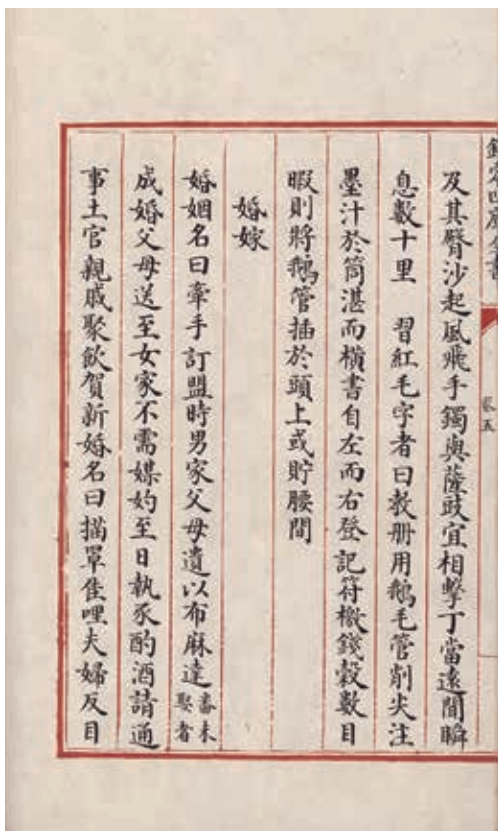 欽定四庫全書
卷五
及其臀沙起風飛手鐲與薩豉宜相擊丁當遠聞瞬
息數十里　習紅毛字者曰教册用鵝毛管削尖注
墨汁於筒湛而橫書自左而右登記符檄錢穀數目
暇則將鵝管插於頭上或貯腰間
婚嫁
婚姻名曰牽手訂盟時男家父母遺以布麻達番未娶者
成婚父母送至女家不需媒妁至日執豕酌酒請通
事土官親戚聚飲賀新婚名曰描罩佳哩夫婦反目